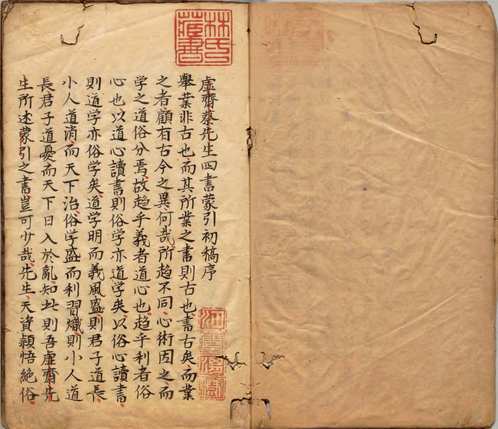 虛齋蔡先生四書蒙引初稿序
舉業非古也而其所業之書則古也書古矣而業
之者顧有古今之異何哉所趨不同心術因之而
學之道俗分焉故趨乎義者道心也趨乎利者俗
心也以道心讀書則俗学亦道学矣以俗心讀書
則道学亦俗学矣道学明而義風盛則君子道長
小人道消而天下治俗学盛而利習熾則小人道
長君子道憂而天下日入於亂知此則吾虛齋先
生所述蒙引之書豈可少哉先生天資穎悟絶俗
林氏藏書